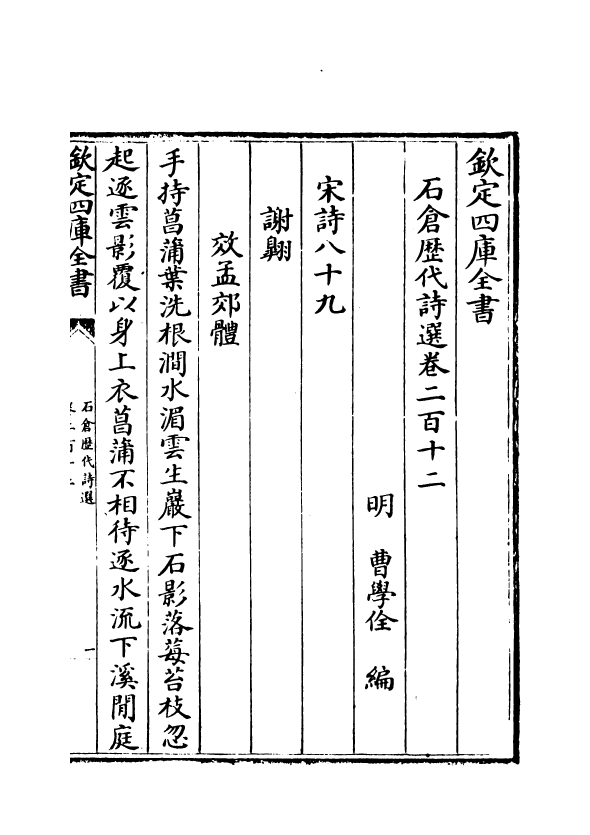 欽定四庫全書
石倉歴代詩選卷二百十二
明　曹學佺　編
宋詩八十九
謝翺
效孟郊體
手持菖蒲葉洗根澗水湄雲生巖下石影落莓苔枝忽
起逐雲影覆以身上衣菖蒲不相待逐水流下溪閒庭
欽定四庫全書
石倉歴代詩選
卷二百十二
一